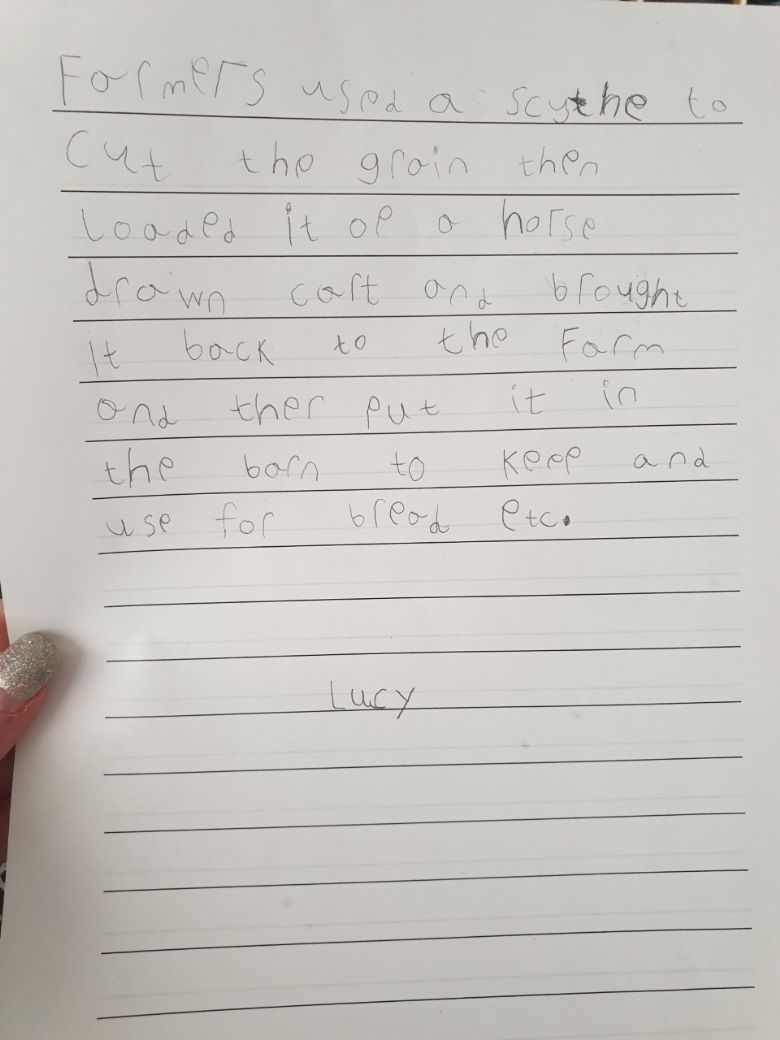 Farmers used a scythe to
cut the grain then
loaded it op a horse
drawn cart and brought
It back to the Farm
and ther put it in
the barn to keep and
use for bread etc.
Lucy